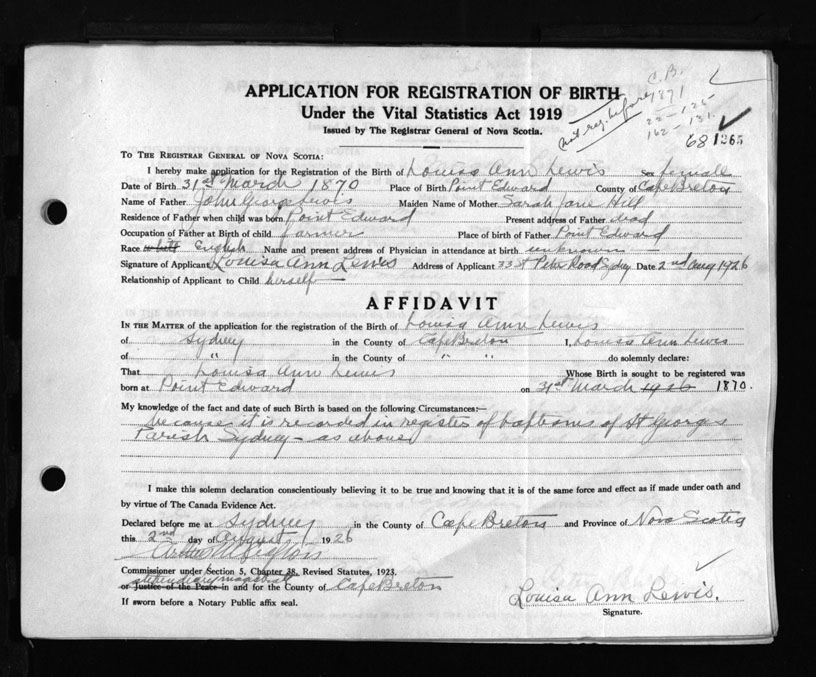 APPLICATION FOR REGISTRATION OF BIRTH
Under the Vital Statistics Act 1919
Issued by The Registrar General of Nova Scotia.
C. B.
not reg. before 1871
22-125-
162-131.
68 1365
TO THE REGISTRAR GENERAL OF NOVA SCOTIA:
I hereby make application for the Registration of the Birth of Louisa Ann Lewis Sex female
Date of Birth 31st March 1870 Place of Birth Point Edward County of Cape Breton
Name of Father John George Lewis Maiden Name of Mother Sarah Jane Hill
Residence of Father when child was born Point Edward Present address of Father dead
Occupation of Father at Birth of child farmer Place of birth of Father Point Edward
Race English Name and present address of Physician in attendance at birth unknown
Signature of Applicant Louisa Ann Lewis Address of Applicant 33 St Peter Road Sydney Date 2nd Aug 1926
Relationship of Applicant to Child herself
AFFIDAVIT
IN THE MATTER of the application for the registration of the Birth of Louisa Ann Lewis
of Sydney in the County of Cape Breton I, Louisa Ann Lewis
of " in the County of " " do solemnly declare:
That Louisa Ann Lewis Whose Birth is sought to be registered was
born at Point Edward on 31st March 1926 1870.
My knowledge of the fact and date of such Birth is based on the following Circumstances:—
because it is recorded in register of baptisms of St Georges
Parish Sydney - as above
I make this solemn declaration conscientiously believing it to be true and knowing that it is of the same force and effect as if made under oath and
by virtue of The Canada Evidence Act.
Declared before me at Sydney in the County of Cape Breton and Province of Nova Scotia
this 2nd day of August 1926
Commissioner under Section 5, Chapter 38, Revised Statutes, 1923.
stipendiary magistrate
or Justice of the Peace in and for the County of Cape Breton
If sworn before a Notary Public affix seal.
Louisa Ann Lewis.
Signature.